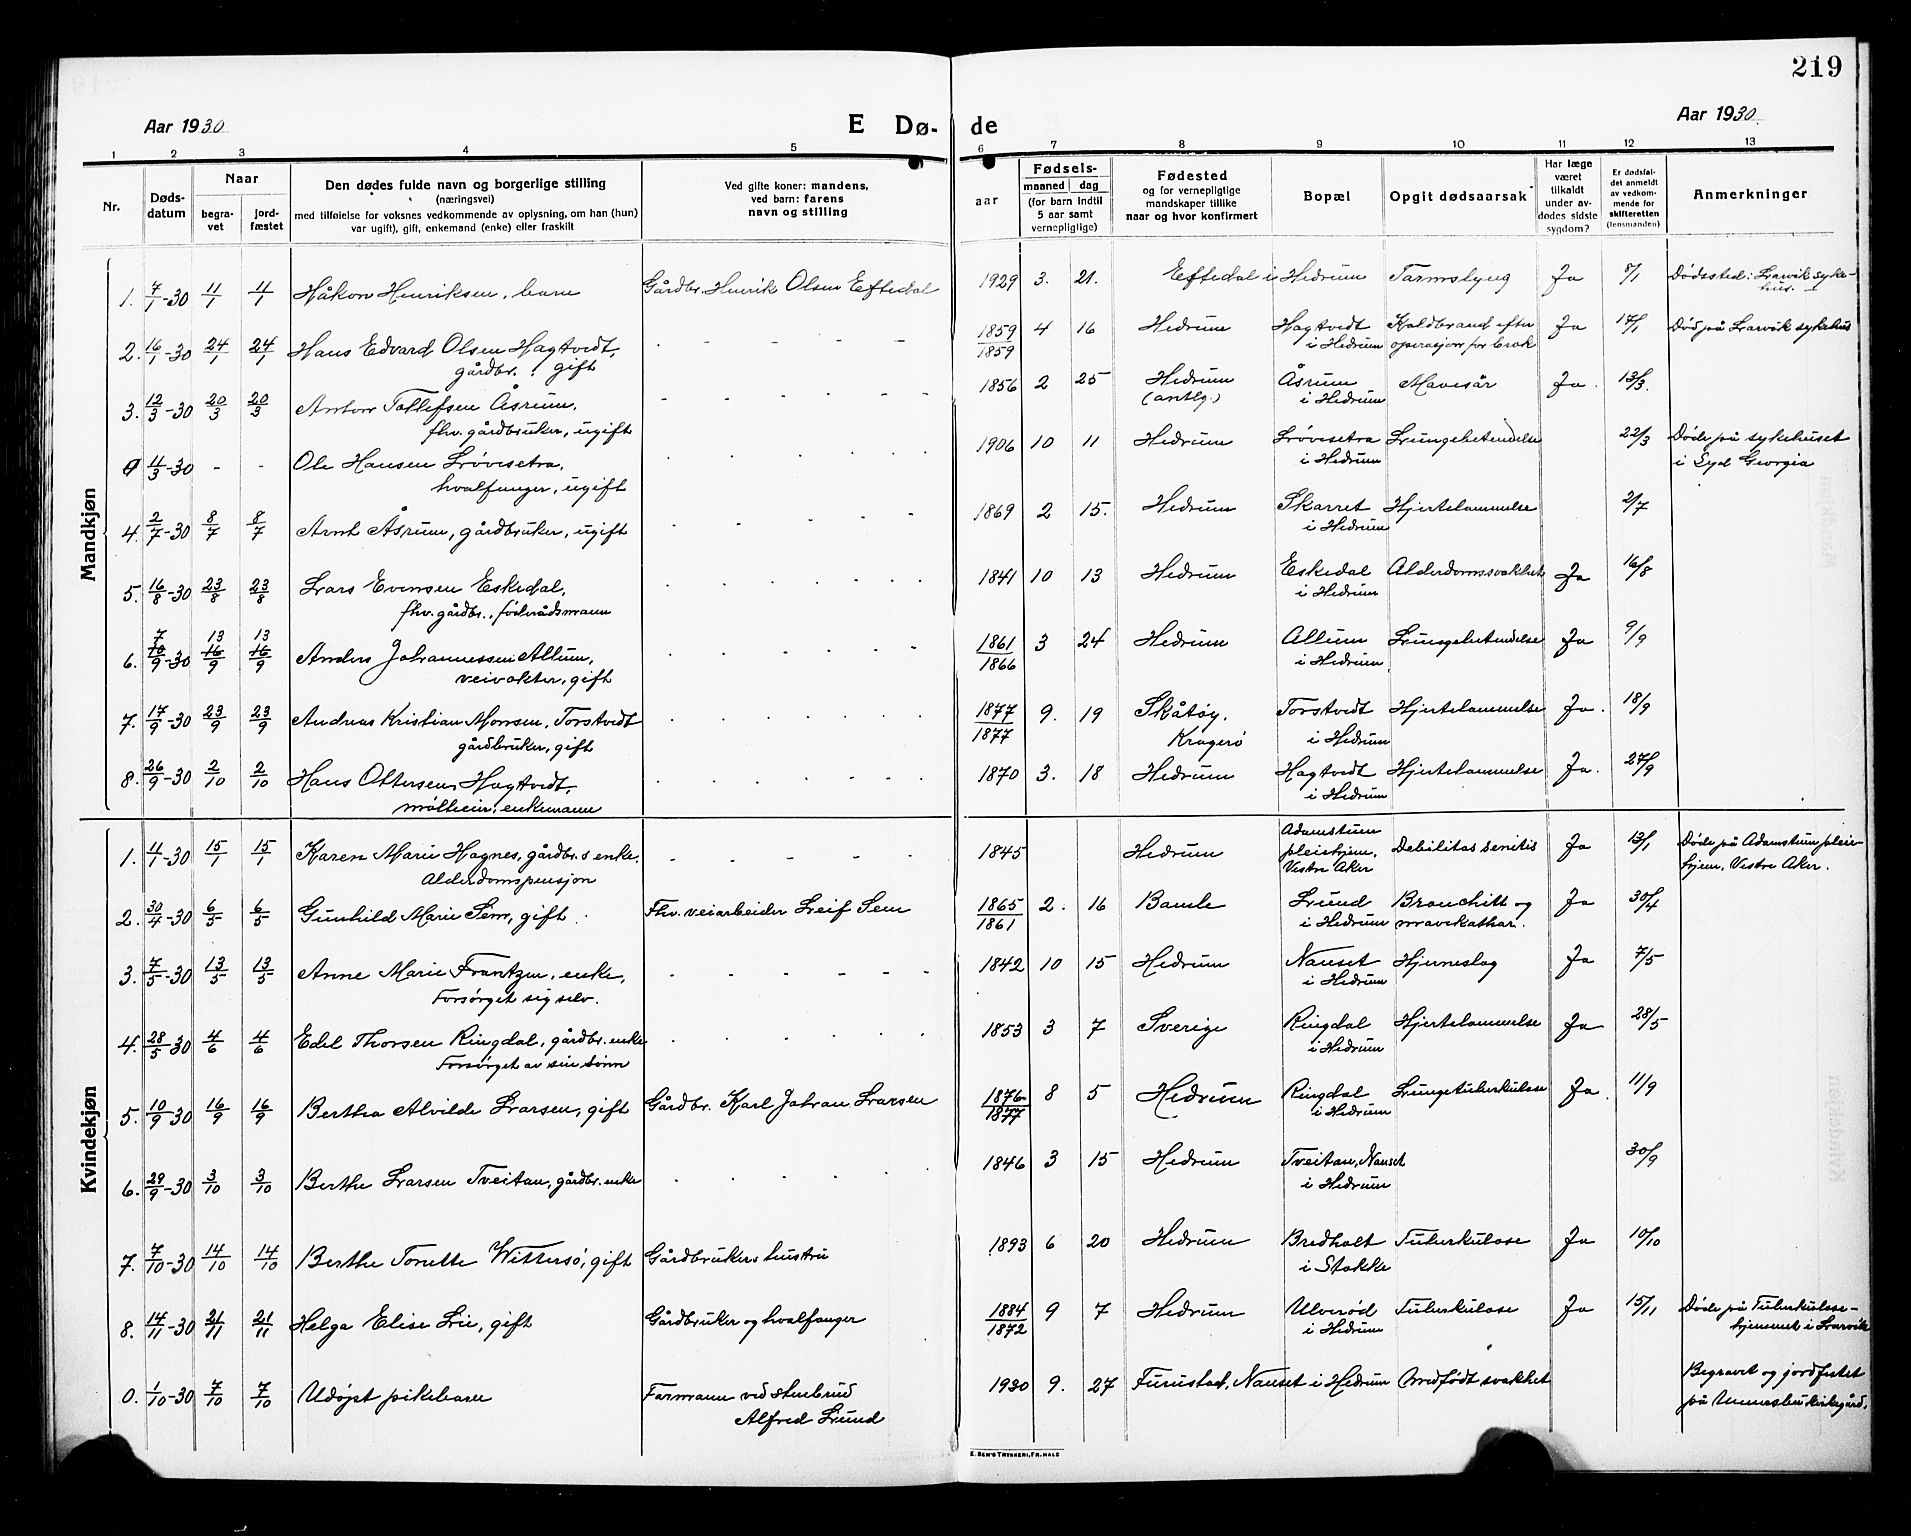 219
Aar 1930
E Dø- de
Aar 1930.
1 2 3 4 5 6 7 8 9 10 11 12 13
Nr.
Døds-
datum
Naar
begra-
vet
jord-
fæstet
Den dødes fulde navn og borgerlige stilling
(næringsvei)
med tilføielse for voksnes vedkommende av oplysning, om han (hun)
var ugift), gift, enkemand (enke) eller fraskilt
Ved gifte koner: mandens,
ved barn: farens
navn og stilling
aar
Fødsels-
maaned dag
(for barn indtil
5 aar samt
vernepligtige)
Fødested
og for vernepligtige
mandskaper tillike
naar og hvor konfirmert
Bopæl
Opgit dødsaarsak
Har læge
været
tilkaldt
under av-
dødes sidste
sygdom?
Er dødsfal-
det anmeldt
av vedkom-
mende for
skifteretten
(lensmanden)
Anmerkninger
Mandkjøn
1. 7/1-30 11/1 11/1 Håkon Henriksen, barn Gårdbr. Henrik Olsen Eftedal 1929 3. 21. Eftedal i Hedrum Tarmslyng Ja 8/1 Dødested: Larvik syke-
hus.
2. 16/1-30 24/1 24/1 Hans Edvard Olsen Hagtvedt, 1859/1859 4 16 Hedrum Hagtvedt Koldbrand efter Ja 17/1 Død på Larvik sykehus
gårdbr., gift i Hedrum operasjon for brok
3. 12/3-30 20/3 20/3 Anton Tollefsen Åsrum, 1856 2 25 Hedrum Åsrum Mavesår Ja. 13/3.
fhv. gårdbruker, ugift (antlg.) i Hedrum
0 11/3-30 - - Ole Hansen Løvesetra, 1906 10 11 Hedrum Løvesetra Lungebetendelse 22/3 Døde på sykehuset
hvalfanger, ugift i Hedrum i Syd Georgia
4. 2/7-30 8/7 8/7 Arnt Åsrum, gårdbruker, ugift 1869 2 15. Hedrum Skarret Hjertelammelse 2/7
i Hedrum
5. 16/8-30 23/8 23/8 Lars Evensen Eskedal, 1841 10 13 Hedrum Eskedal Alderdomssvakhet Ja 16/8
fhv. gårdbr., føderådsmann i Hedrum
6. 7/9-30 13/9 13/9 Anders Johannessen Allum, 1861/1866 3 24 Hedrum Allum Lungebetendelse Ja 9/9
veivokter, gift i Hedrum
7. 17/9-30 23/9 23/9 Andreas Kristian Monsen, Torstvedt 1877/1877 9. 19 Skåtøy, Torstvedt Hjertelammelse Ja. 18/9
gårdbruker, gift Kragerø i Hedrum
8. 26/9-30 2/10 2/10 Hans Ottersen Hagtvedt, 1870 3. 18 Hedrum Hagtvedt Hjertelammelse Ja. 27/9
enkemann i Hedrum
Kvindekjøn
1. 11/1-30 15/1 15/1 Karen Marie Hagnes, gårdbr.s enke. 1845 Hedrum Adamstuen pleiehjem, Vestre Aker Debilitas senilis Ja 13/1 Døde på Adamstuen pleie-
Alderdomspensjon hjem, Vestre Aker.
2. 30/4-30 6/5 6/5 Gunhild Marie Sem, gift Fhv. veiarbeider Leif Sem 1865/1861 2. 16 Bamle Lund Bronchitt og Ja 30/4
i Hedrum mavekathar.
3. 7/5-30 13/5 13/5 Anne Marie Frantzen, enke, 1842 10 15 Hedrum Nanset Hjerneslag Ja 7/5
Forsørget sig selv. i Hedrum
4. 28/5-30 4/6 4/6 Edel Thorsen Ringdal, gårdbr. enke 1853 3 7 Sverige Ringdal Hjertelammelse Ja 28/5
Forsørget av sin sønn i Hedrum
5. 10/9-30 16/9 16/9 Bertha Alvilde Larsen, gift Gårdbr. Karl Johan Larsen 1876/1877 8 5 Hedrum Ringdal Lungetuberkulose Ja. 11/9
i Hedrum
6. 29/9-30 3/10 3/10 Berthe Larsen Tveitan, gårdbr. enke 1846 3 15 Hedrum Tveitan, Nanset 30/9
i Hedrum
7. 7/10-30 14/10 14/10 Berthe Wittersø, gift Gårdbrukers hustru 1893 6 20 Hedrum Bredholt Tuberkulose Ja 10/10
i Stokke
8. 14/11-30 21/11 21/11 Helga Elise Lie, gift Gårdbruker og hvalfanger 1884/1872 9 7 Hedrum Ulverød Tuberkulose Ja 15/11 Døde på Tuberkulose-
i Hedrum hjemmet i Larvik
0. 1/10-30 7/10 7/10 Udøpt pikebarn Formann ved stenbrud 1930 9. 27 Furustad, Nanset i Hedrum Medfødt svakhet Begravet og jordfestet
Alfred Lund på kirkegård.
E. SEM'S TRYKKERI, FR.HALD